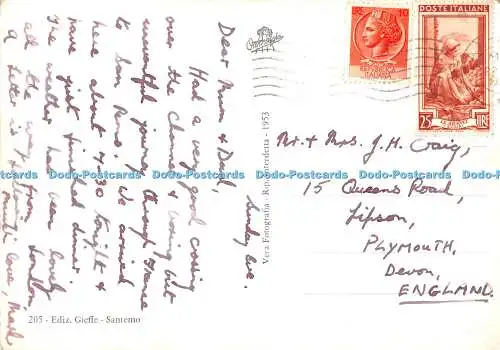 Sunday Eve.
Dear Mum & Dad,
Had a very good crossing
over the channel & uneventful journey through France
to San Remo. We arrived
here about 4.30 tonight &
have just finished dinner.
The weather has been lovely
all the way from London
a letter is
love, Mark
205 - Ediz. Gieffe - Sanremo
Vera Fotografia - Rip. Interdetta - 1953
LIRE 10
REPUBBLICA
ITALIANA
POSTE ITALIANE
25 LIRE
Mr. & Mrs. J. H. Craig,
15 Queens Road,
Lipson,
PLYMOUTH,
Devon,
ENGLAND.
Dodo-Postcards Dodo-Postcards Dodo-Postcards Dodo-Postcards Dodo-Postcards